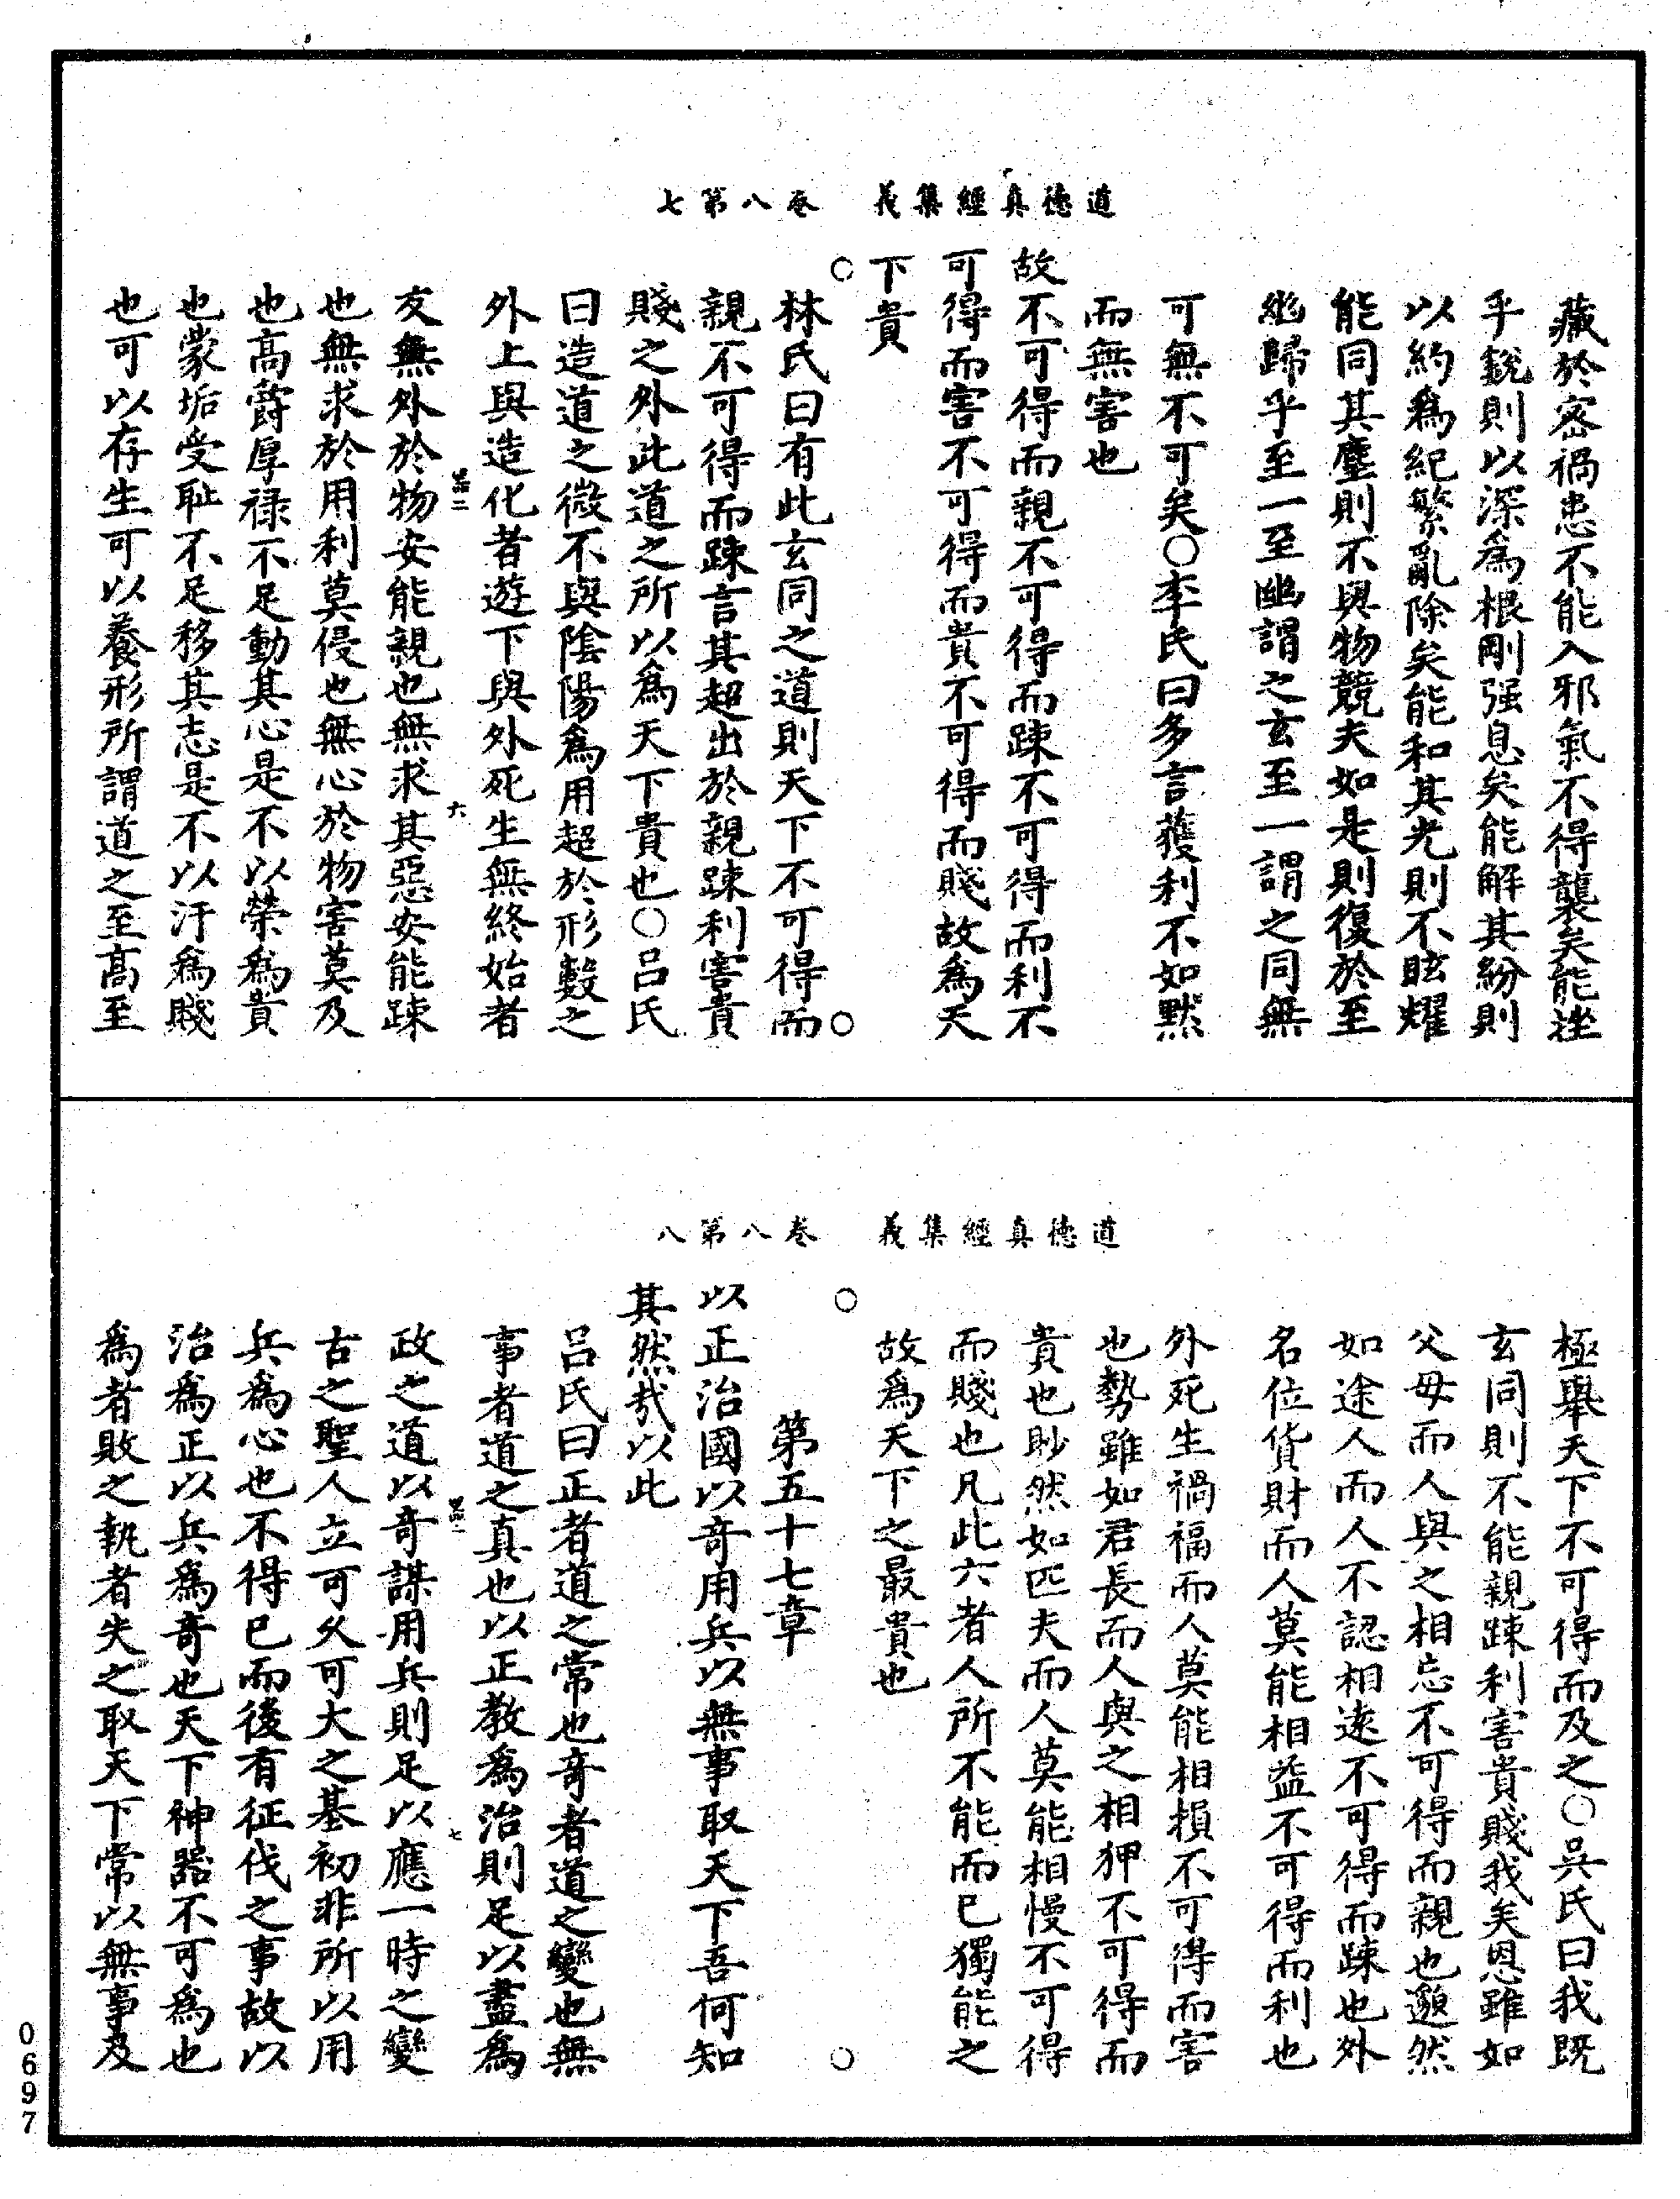 道德真經集義　卷八第七
藏於密禍患不能入邪氣不得襲矣能挫
乎銳則以深爲根剛强息矣能解其紛則
以約爲紀繁亂除矣能和其光則不眩耀
能同其塵則不與物競夫如是則復於至
幽歸乎至一至幽謂之玄至一謂之同無
可無不可矣○李氏曰多言獲利不如默
而無害也
故不可得而親不可得而踈不可得而利不
可得而害不可得而貴不可得而賤故爲天
下貴
○　○
林氏曰有此玄同之道則天下不可得而
親不可得而踈言其超出於親踈利害貴
賤之外此道之所以爲天下貴也○呂氏
曰造道之微不與陰陽爲用超於形數之
外上與造化者遊下與外死生無終始者
六
友無外於物安能親也無求其惡安能踈
也無求於用利莫侵也無心於物害莫及
也高爵厚祿不足動其心是不以榮爲貴
也蒙垢受恥不足移其志是不以汙爲賤
也可以存生可以養形所謂道之至高至
道德真經集義　卷八第八
極舉天下不可得而及之○吳氏曰我既
玄同則不能親踈利害貴賤我矣恩雖如
父母而人與之相忘不可得而親也邈然
如途人而人不認相遠不可得而踈也外
名位貨財而人莫能相益不可得而利也
外死生禍福而人莫能相損不可得而害
也勢雖如君長而人與之相狎不可得而
貴也眇然如匹夫而人莫能相慢不可得
而賤也凡此六者人所不能而已獨能之
故爲天下之最貴也
○　○
第五十七章
以正治國以奇用兵以無事取天下吾何知
其然哉以此
呂氏曰正者道之常也奇者道之變也無
事者道之真也以正教爲治則足以盡爲
七
政之道以奇謀用兵則足以應一時之變
古之聖人立可久可大之基初非所以用
兵爲心也不得已而後有征伐之事故以
治爲正以兵爲奇也天下神器不可爲也
爲者敗之執者失之取天下常以無事及
0697